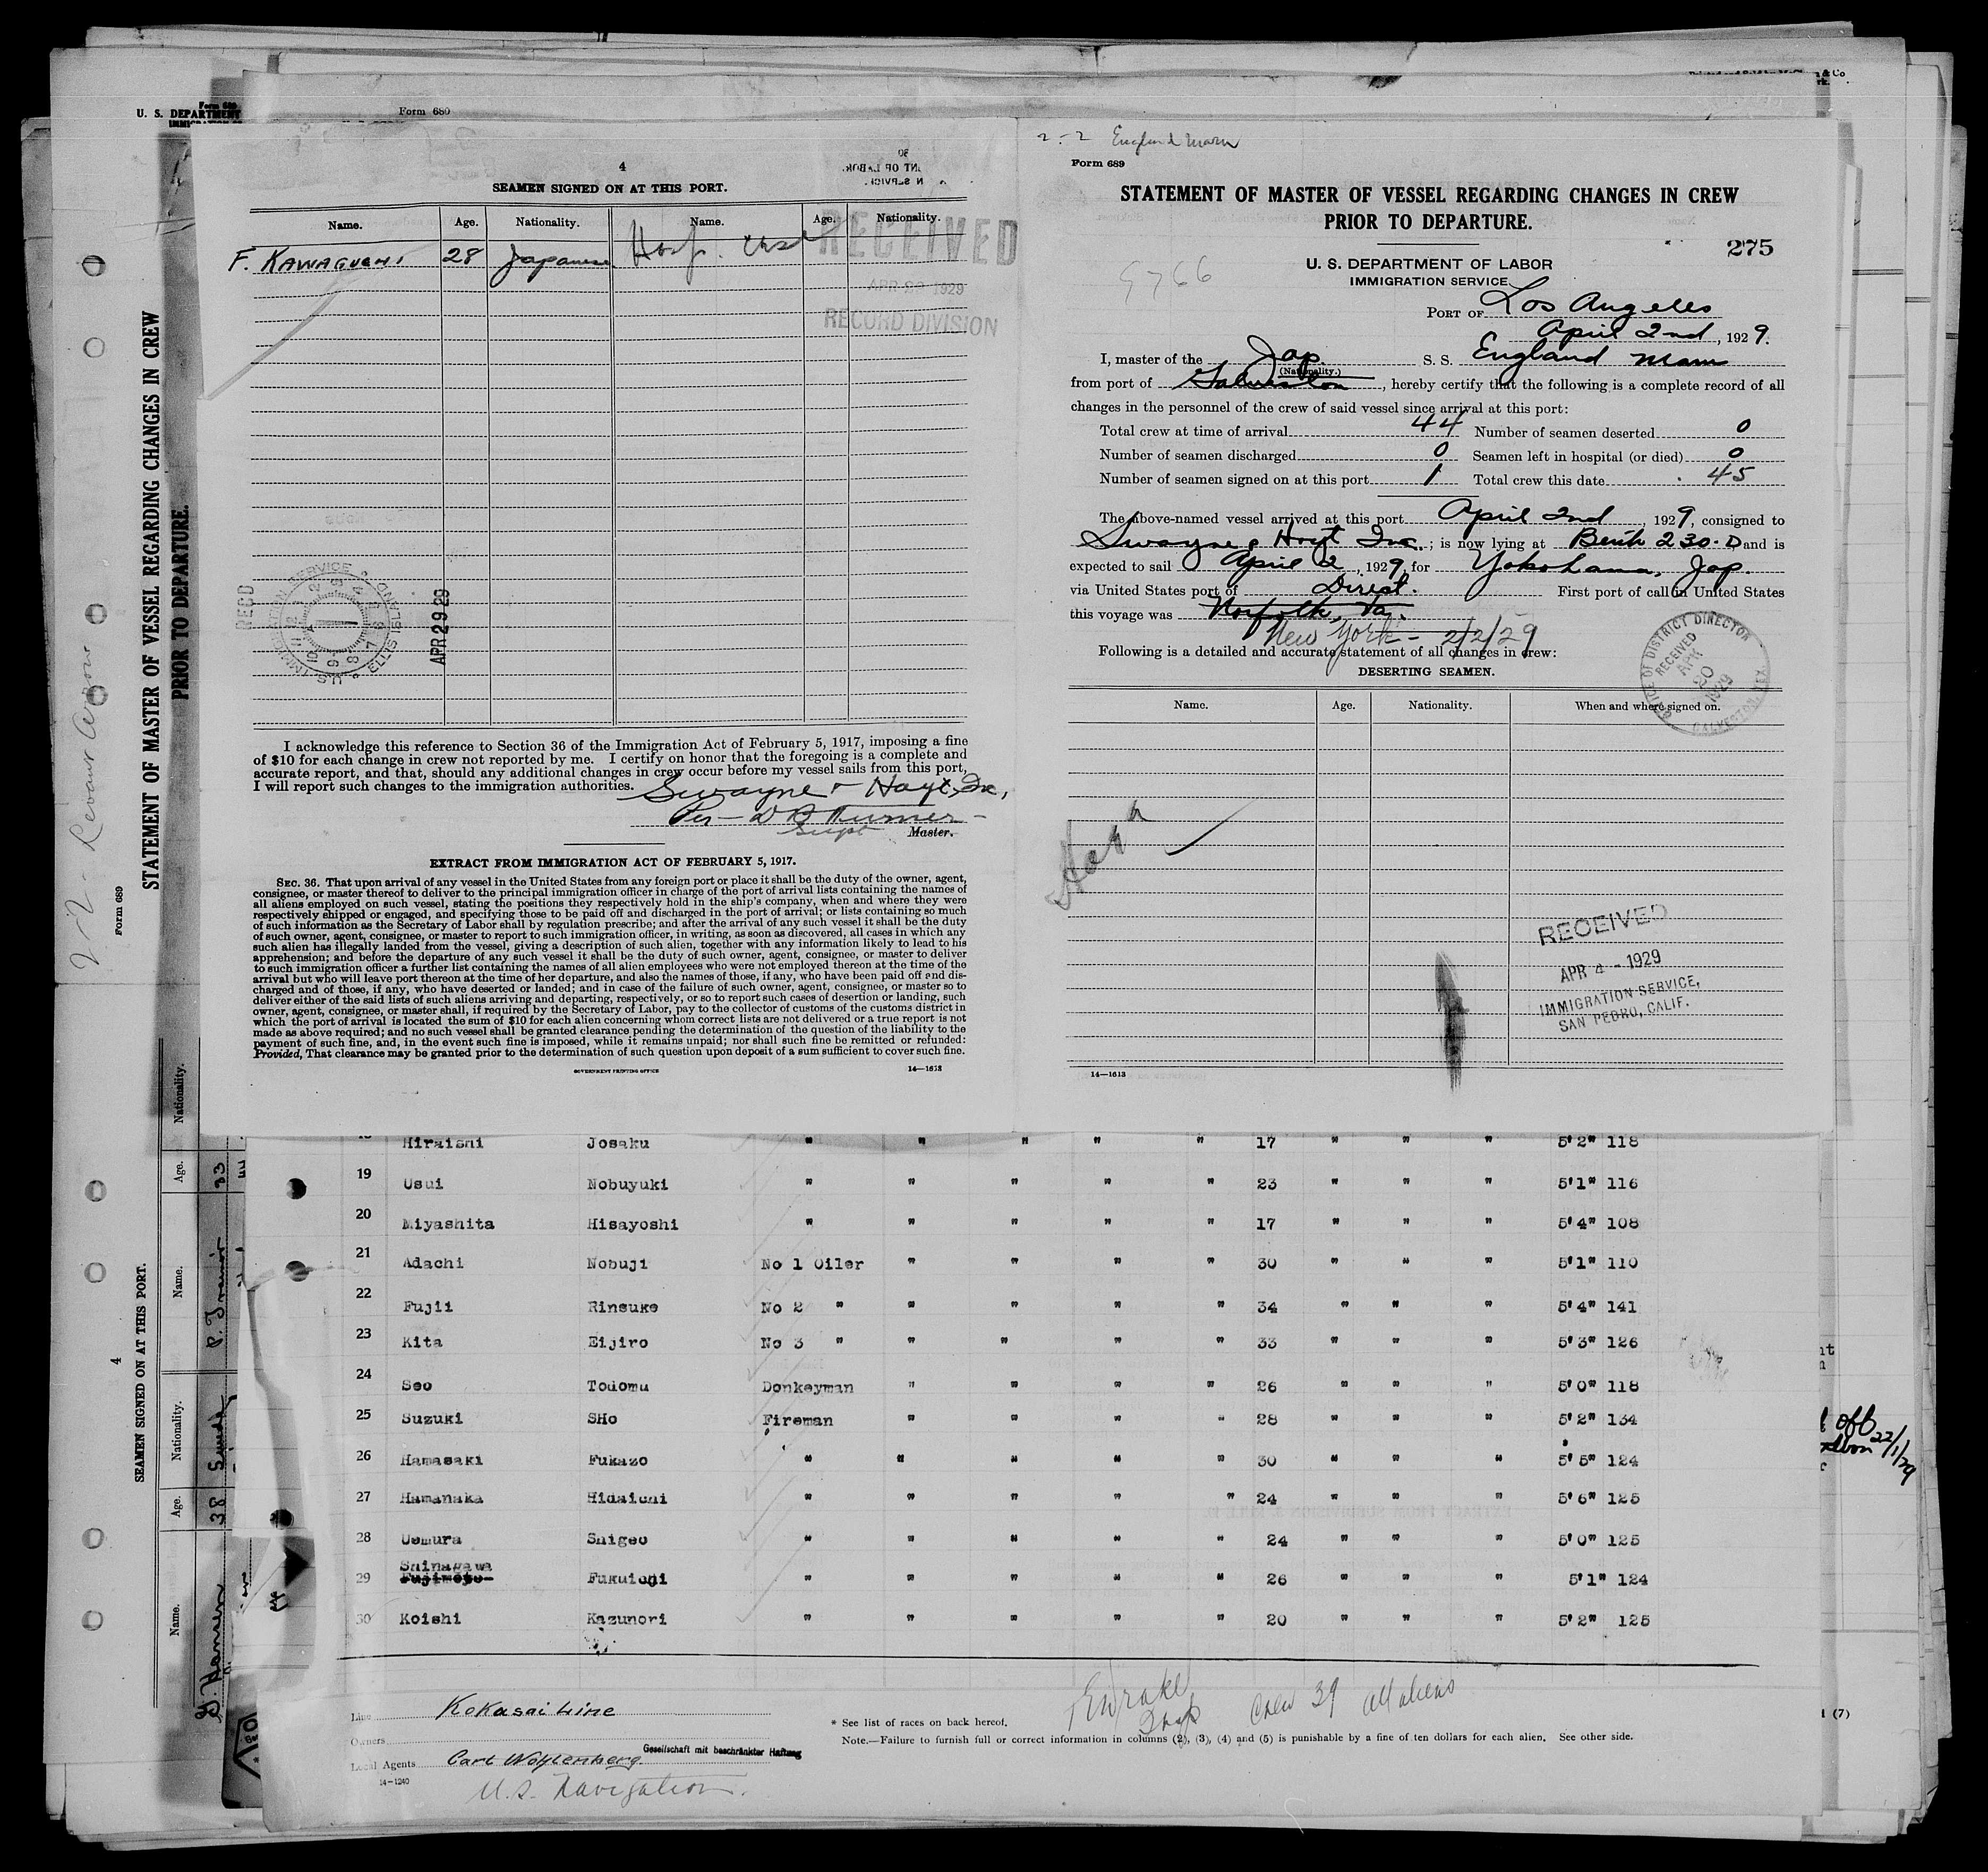 Form 680
U. S. DEPARTMENT
Form 680
& Co
4
SEAMEN SIGNED ON AT THIS PORT.
Name. Age. Nationality. Name. Age. Nationality.
F. KAWAGUCHI 28 Japanese
RECEIVED
APR 1929
RECORD DIVISION
RECD
U.S. IMMIGRATION SERVICE ELLIS ISLAND
APR 29 29
I acknowledge this reference to Section 36 of the Immigration Act of February 5, 1917, imposing a fine
of $10 for each change in crew not reported by me. I certify on honor that the foregoing is a complete and
accurate report, and that, should any additional changes in crew occur before my vessel sails from this port,
I will report such changes to the immigration authorities.
Swayne & Hoyt, Inc,
Per — Supt
Master.
EXTRACT FROM IMMIGRATION ACT OF FEBRUARY 5, 1917.
SEC. 36. That upon arrival of any vessel in the United States from any foreign port or place it shall be the duty of the owner, agent,
consignee, or master thereof to deliver to the principal immigration officer in charge of the port of arrival lists containing the names of
all aliens employed on such vessel, stating the positions they respectively hold in the ship's company, when and where they were
respectively shipped or engaged, and specifying those to be paid off and discharged in the port of arrival; or lists containing so much
of such information as the Secretary of Labor shall by regulation prescribe; and after the arrival of any such vessel it shall be the duty
of such owner, agent, consignee, or master to report to such immigration officer, in writing, as soon as discovered, all cases in which any
such alien has illegally landed from the vessel, giving a description of such alien, together with any information likely to lead to his
apprehension; and before the departure of any such vessel it shall be the duty of such owner, agent, consignee, or master to deliver
to such immigration officer a further list containing the names of all alien employees who were not employed thereon at the time of the
arrival but who will leave port thereon at the time of her departure, and also the names of those, if any, who have been paid off and dis-
charged and of those, if any, who have deserted or landed; and in case of the failure of such owner, agent, consignee, or master so to
deliver either of the said lists of such aliens arriving and departing, respectively, or so to report such cases of desertion or landing, such
owner, agent, consignee, or master shall, if required by the Secretary of Labor, pay to the collector of customs of the customs district in
which the port of arrival is located the sum of $10 for each alien concerning whom correct lists are not delivered or a true report is not
made as above required; and no such vessel shall be granted clearance pending the determination of the question of the liability to the
payment of such fine, and, in the event such fine is imposed, while it remains unpaid; nor shall such fine be remitted or refunded:
Provided, That clearance may be granted prior to the determination of such question upon deposit of a sum sufficient to cover such fine.
GOVERNMENT PRINTING OFFICE 14—1613
2-2 England Maru
Form 689
STATEMENT OF MASTER OF VESSEL REGARDING CHANGES IN CREW
PRIOR TO DEPARTURE.
275
U. S. DEPARTMENT OF LABOR
IMMIGRATION SERVICE
PORT OF Los Angeles
April 2nd, 1929.
I, master of the Jap. S. S. England Maru
(Nationality.)
from port of Galveston, hereby certify that the following is a complete record of all
changes in the personnel of the crew of said vessel since arrival at this port:
Total crew at time of arrival 44 Number of seamen deserted 0
Number of seamen discharged 0 Seamen left in hospital (or died) 0
Number of seamen signed on at this port 1 Total crew this date 45
The above-named vessel arrived at this port April 2nd, 1929, consigned to
Swayne & Hoyt Inc.; is now lying at Berth 230-D and is
expected to sail April 2, 1929, for Yokohama, Jap.
via United States port of Direct. First port of call in United States
this voyage was Norfolk, Va.
New York - 2/2/29
Following is a detailed and accurate statement of all changes in crew:
DESERTING SEAMEN.
OFFICE OF DISTRICT DIRECTOR
RECEIVED
APR 20 1929
GALVESTON, TEX
Name. Age. Nationality. When and where signed on.
RECEIVED
APR 4 - 1929
IMMIGRATION SERVICE,
SAN PEDRO, CALIF.
14—1613
Hiraishi Josaku " " " " " 17 " " " 5'2" 118
19 Usui Nobuyuki " " " " " 23 " " " 5'1" 116
20 Miyashita Hisayoshi " " " " " 17 " " " 5'4" 108
21 Adachi Nobuji No 1 Oiler " " " " 30 " " " 5'1" 110
22 Fujii Rinsuke No 2 " " " " " 34 " " " 5'4" 141
23 Kita Eijiro No 3 " " " " " 33 " " " 5'3" 126
24 Seo Todomu Donkeyman " " " " 26 " " " 5'0" 118
25 Suzuki SHo Fireman " " " " 28 " " " 5'2" 134
26 Hamasaki Fukazo " " " " " 30 " " " 5'5" 124
27 Hamanaka Hidaichi " " " " " 24 " " " 5'6" 125
28 Uemura Shigeo " " " " " 24 " " " 5'0" 125
Shinagawa
29 Fujimoto Fukuichi " " " " " 26 " " " 5'1" 124
30 Koishi Kazunori " " " " " 20 " " " 5'2" 125
Line Kokasai Line
Owners
Local Agents Carl Wohlenberg Gesellschaft mit beschränkter Haftung
14-1240
U.S. Navigation.
* See list of races on back hereof.
Crew 39 all aliens
NOTE.—Failure to furnish full or correct information in columns (2), (3), (4) and (5) is punishable by a fine of ten dollars for each alien. See other side.
(7)
22/1/29
STATEMENT OF MASTER OF VESSEL REGARDING CHANGES IN CREW
PRIOR TO DEPARTURE.
Form 689
4
SEAMEN SIGNED ON AT THIS PORT.
Name. Age. Nationality. Name. Age. Nationality.
38 33